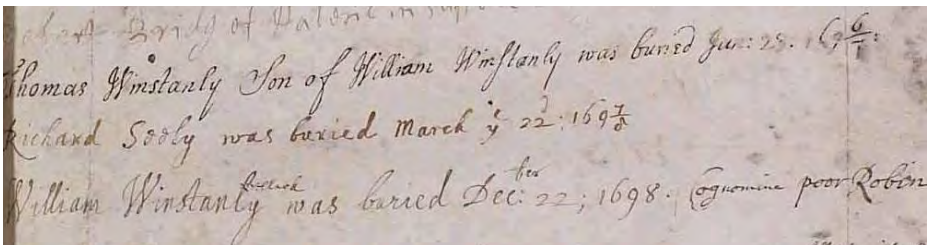 Bridg of
Thomas Winstanly Son of William Winstanly was buried Jun: 28. 169 6/7:
Richard Sooly was buried March ye 22d: 169 7/8
William Winstanly was buried Decber: 22; 1698. Cognomine poor Robin